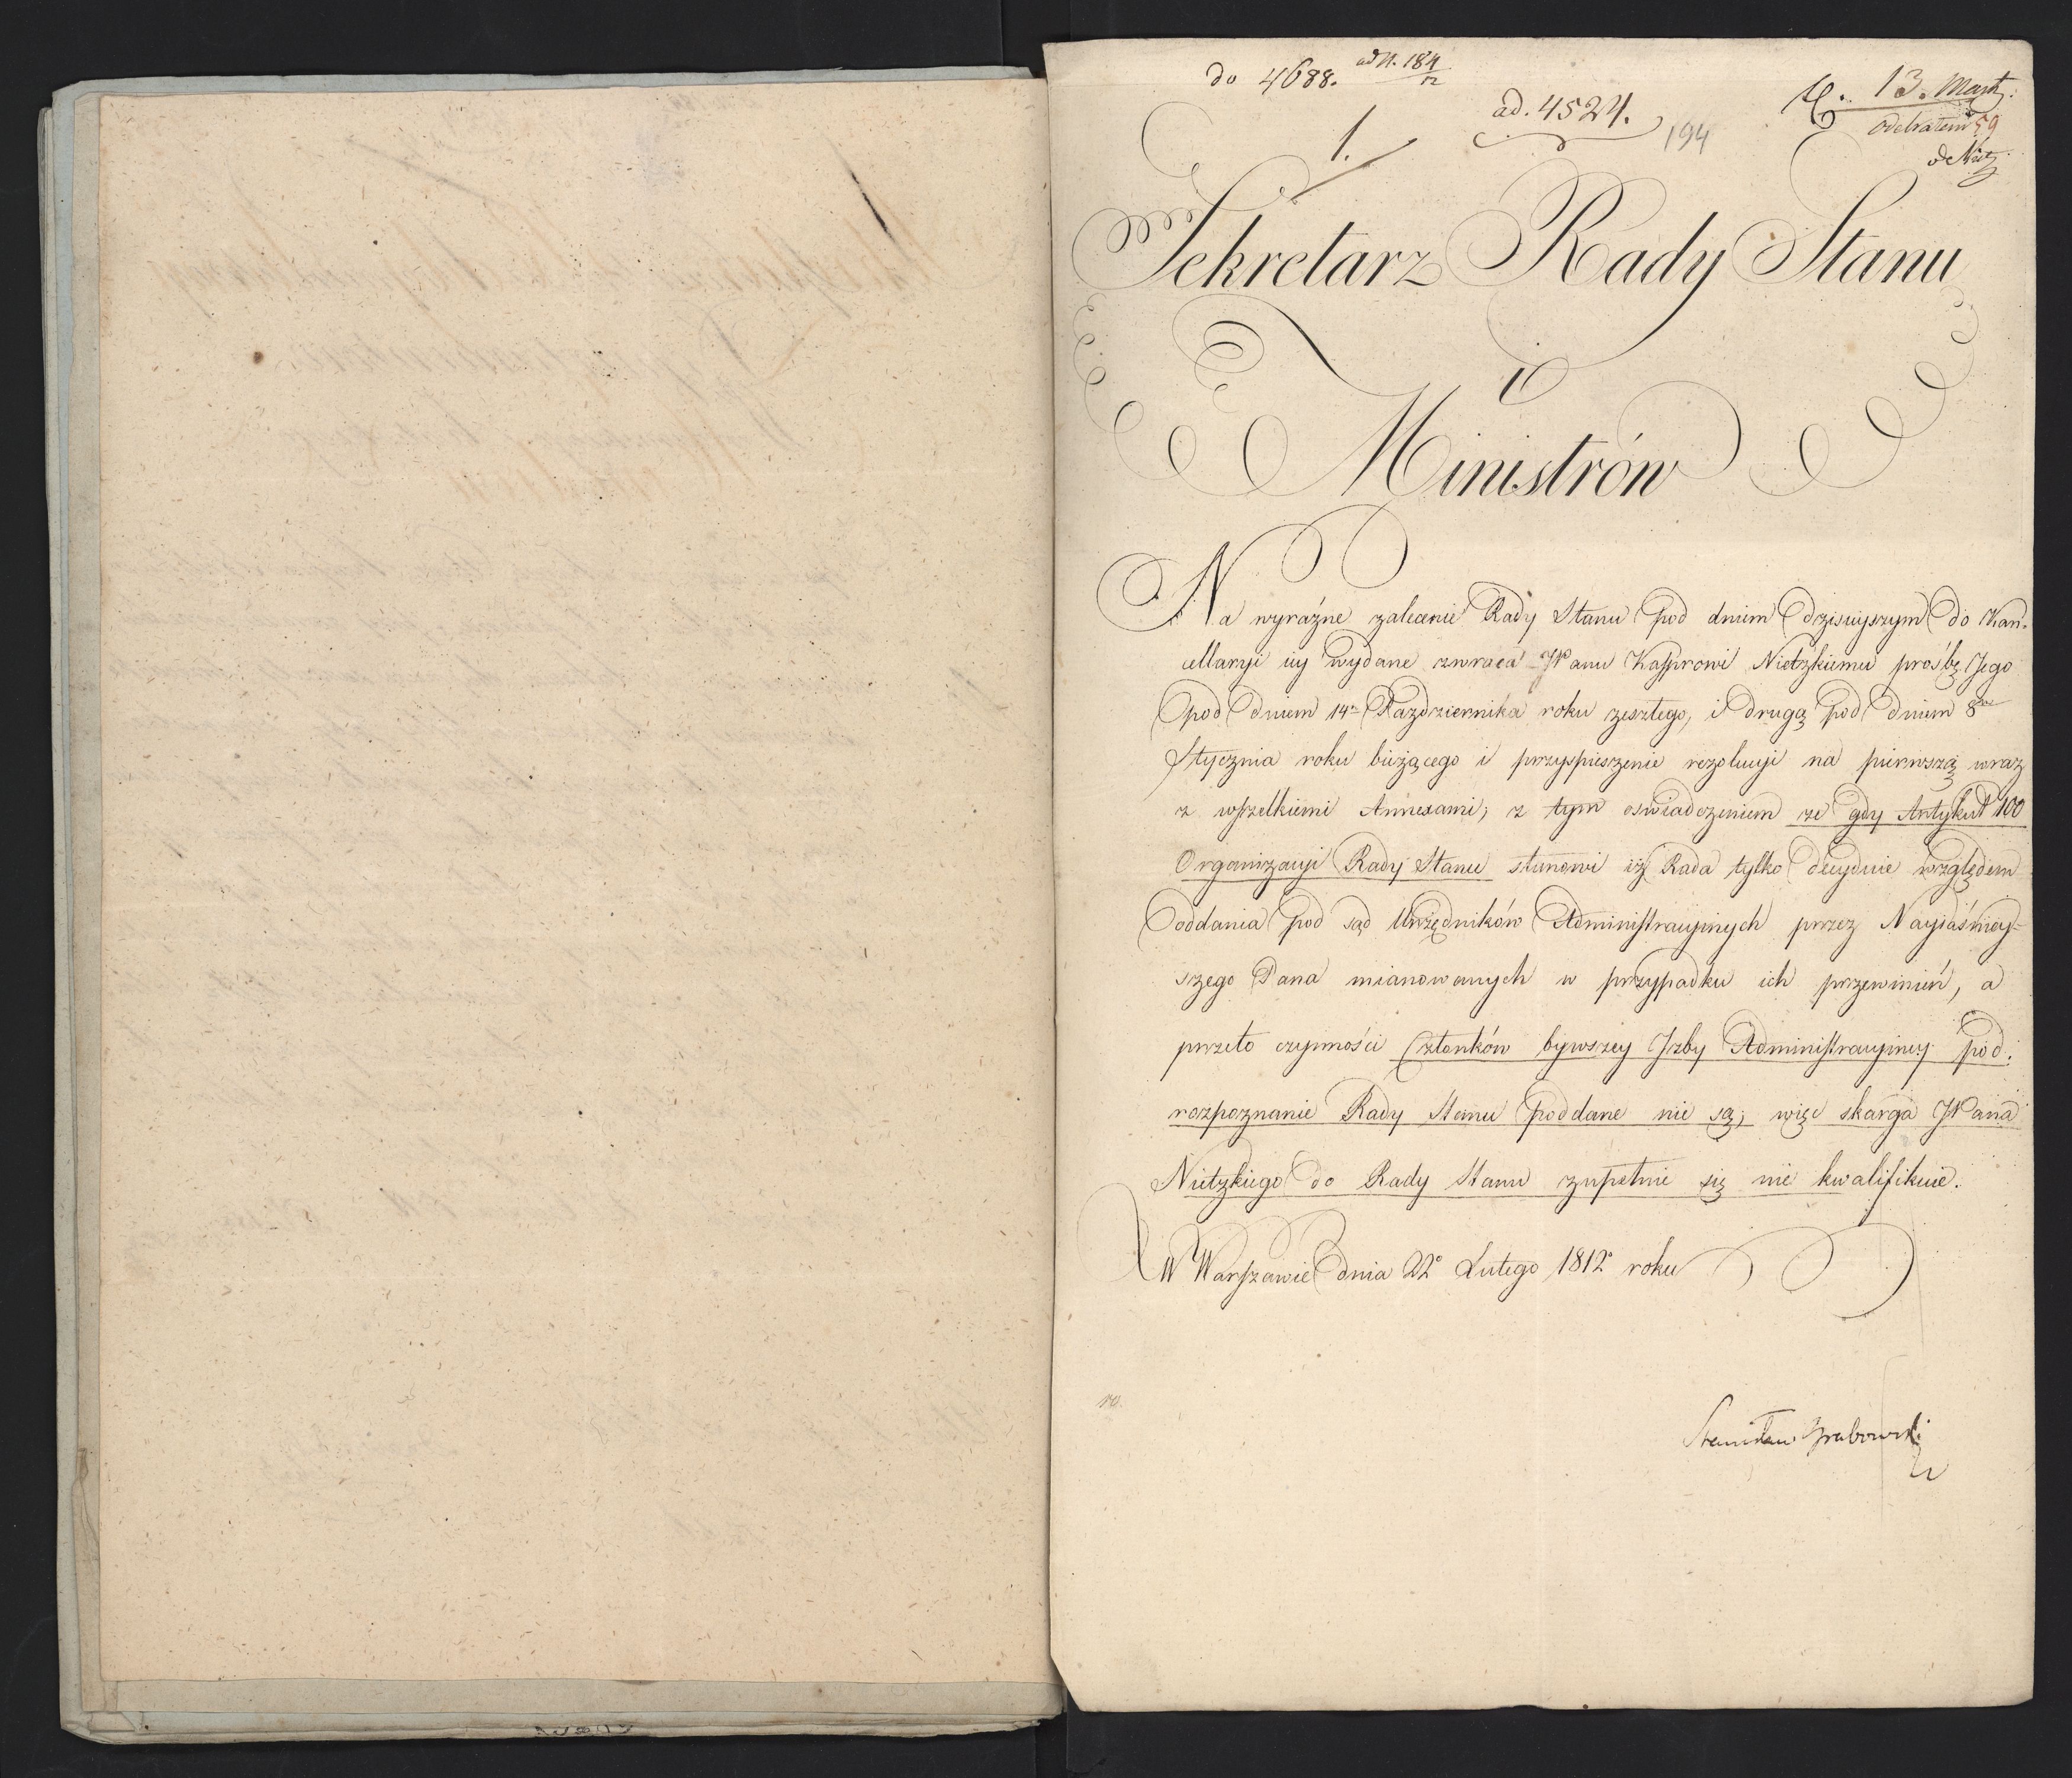 do 4688. ad N. 184/12
ad. 4524.
194
13. Mart:
odebrałem 59
1.
Sekretarz Rady Stanu
i
Ministrów
Na wyraźne zalecenie Rady Stanu pod dniem dzisieyszym do Kan-
cellaryi iey wydane zwraca JPanu Kasprowi Nietzkiemu prośbę Jego
pod dniem 14m Października roku zeszłego, i drugą pod dniem 8m
Stycznia roku bieżącego i przyspieszenie rezolucyi na pierwszą wraz
z wszelkiemi Annexami; z tym oświadczeniem że gdy Artykuł 100
Organizacyi Rady Stanu stanowi iż Rada tylko decyduie względem
oddania pod sąd Urzędników Administracyinych przez Nayiaśniey-
szego Pana mianowanych w przypadku ich przewinień, a
przeto czynności Członków bywszey Izby Administracyiney pod
rozpoznanie Rady Stanu poddane nie są; więc skarga JPana
Nietzkiego do Rady Stanu zupełnie się nie kwalifikuie.
W Warszawie dnia 22o Lutego 1812 roku
Stanisław Grabowski